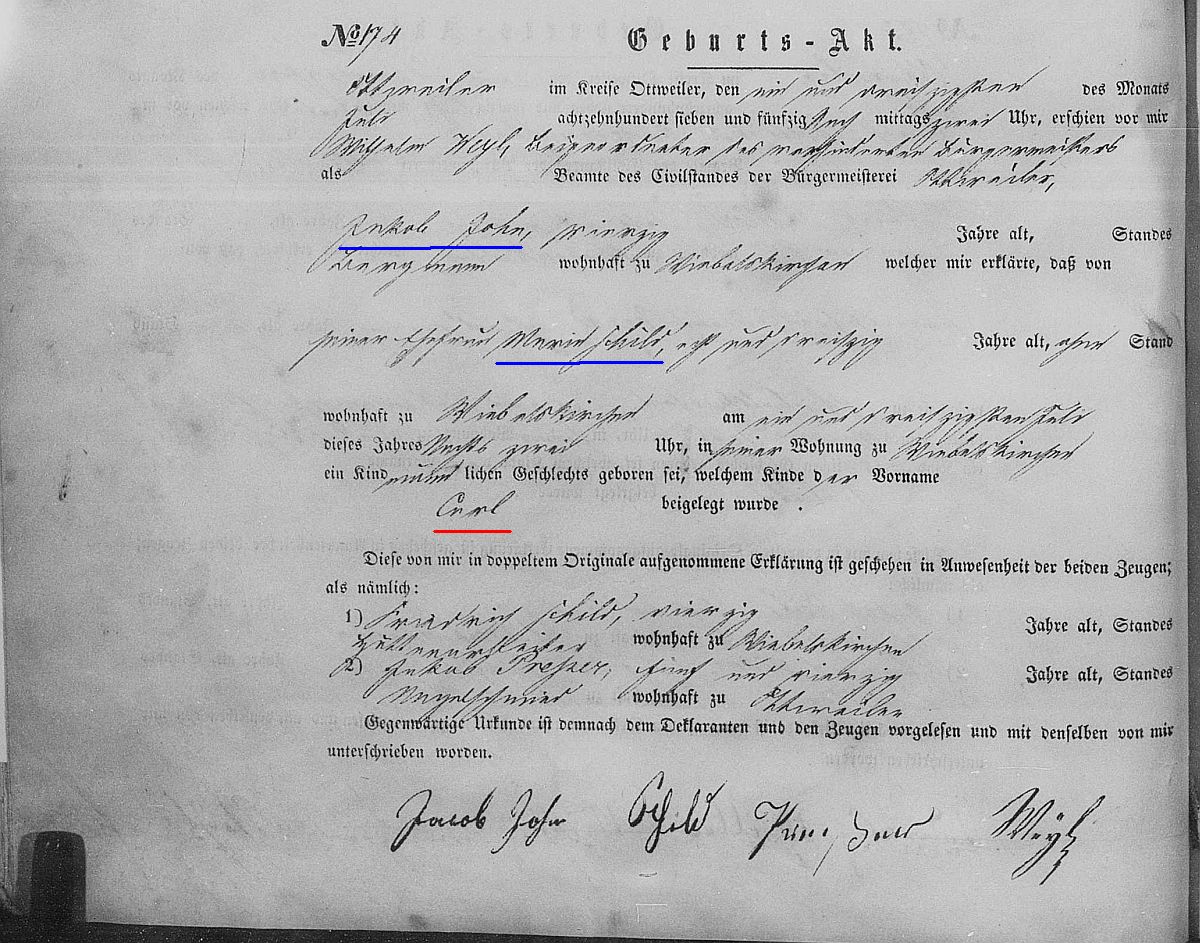 No 174 Geburts-Akt.
Ottweiler im Kreise Ottweiler, den ein und dreißigsten des Monats
Juli achtzehnhundert sieben und fünfzig Nach mittags zwei Uhr, erschien vor mir
Wilhelm Weyl, Beigeordneter des Bürgermeisters
als Beamte des Civilstandes der Bürgermeisterei Ottweiler,
Jakob John, vierzig Jahre alt, Standes
Bergmann wohnhaft zu Wiebelskirchen welcher mir erklärte, daß von
seiner Ehefrau Maria Schild, acht und dreißzig Jahre alt, ohne Stand
wohnhaft zu Wiebelskirchen am ein und dreißzigsten Juli
dieses Jahres Nachts zwei Uhr, in seiner Wohnung zu Wiebelskirchen
ein Kind männlichen Geschlechts geboren sei, welchem Kinde der Vorname
Carl beigelegt wurde .
Diese von mir in doppeltem Originale aufgenommene Erklärung ist geschehen in Anwesenheit der beiden Zeugen;
als nämlich:
1) Friedrich Schild, vierzig Jahre alt, Standes
Hüttenarbeiter wohnhaft zu Wiebelskirchen
2) Jakob fünf und vierzig Jahre alt, Standes
Nagelschmied wohnhaft zu Ottweiler
Gegenwärtige Urkunde ist demnach dem Deklaranten und den Zeugen vorgelesen und mit denselben von mir
unterschrieben worden.
Jacob John Schild Weyl